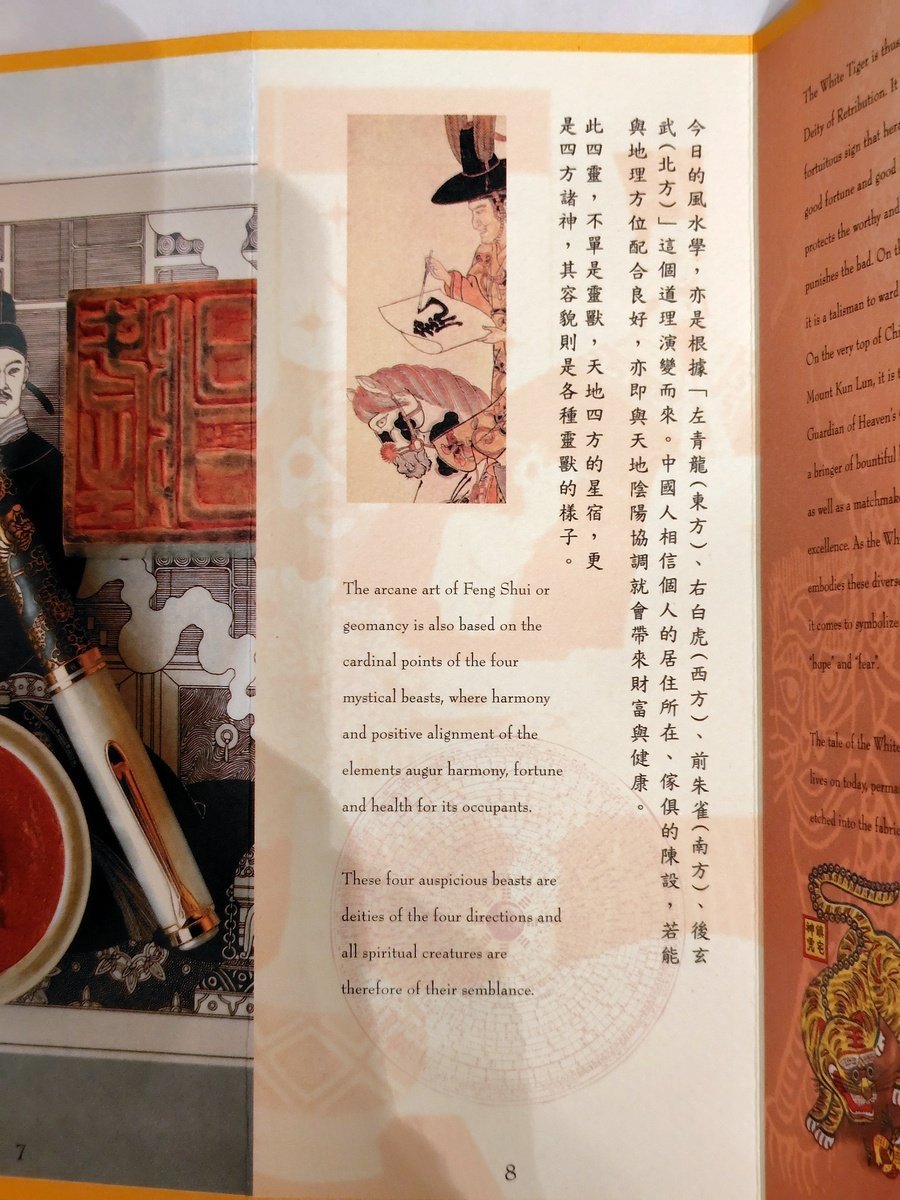 今日的風水學，亦是根據「左青龍(東方)、右白虎(西方)、前朱雀(南方)、後玄
武(北方)」這個道理演變而來。中國人相信個人的居住所在、傢俱的陳設，若能
與地理方位配合良好，亦即與天地陰陽協調就會帶來財富與健康。
此四靈，不單是靈獸，天地四方的星宿，更
是四方諸神，其容貌則是各種靈獸的樣子。
The arcane art of Feng Shui or
geomancy is also based on the
cardinal points of the four
mystical beasts, where harmony
and positive alignment of the
elements augur harmony, fortune
and health for its occupants.
These four auspicious beasts are
deities of the four directions and
all spiritual creatures are
therefore of their semblance.
7
8
The White Tiger is thus
Deity of Retribution. It
fortuitous sign that
good fortune and good
protects the worthy and
punishes the bad. On
it is a talisman to ward
On the very top of
Mount Kun Lun, it is
Guardian of Heaven's
a bringer of bountiful
as well as a
excellence. As the
embodies these
it comes to symbolize
"hope" and "fear".
The tale of the White
lives on today,
etched into the
鎮宅